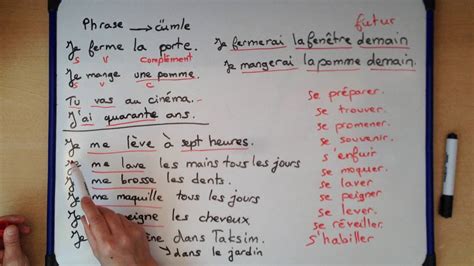 Phrase → cümle
Je ferme la porte.
S V Complément
Je mange une pomme.
S V C
Tu vas au cinéma.
J'ai quarante ans.
Je me lève à sept heures.
Je me lave les mains tous les jours
Je me brosse les dents.
Je me maquille tous les jours
Je peigne les cheveux
Je dans Taksim.
→ dans le jardin
futur
Je fermerai la fenêtre demain
Je mangerai la pomme demain.
se préparer.
se trouver.
se promener.
se souvenir.
s'enfuir
se moquer.
se laver
se peigner
se lever
se réveiller
s'habiller